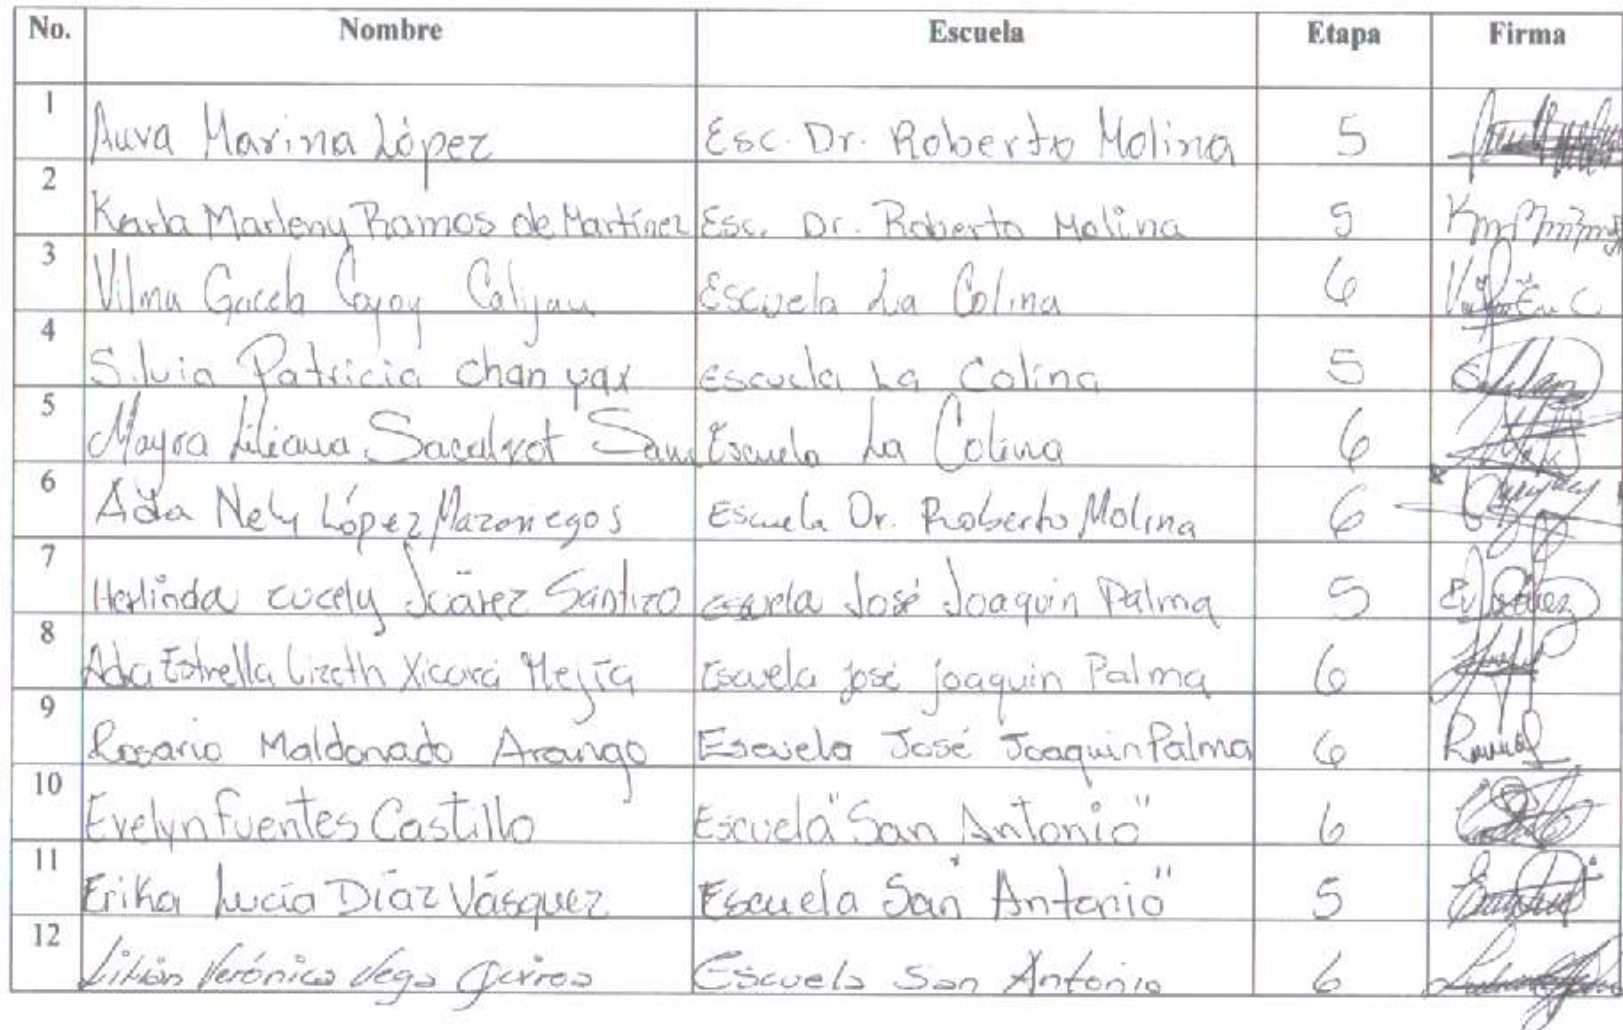 No. Nombre Escuela Etapa Firma
1 Auva Marina López Esc. Dr. Roberto Molina 5
2 Karla Marleny Ramos de Martínez Esc. Dr. Roberto Molina 5
3 Vilma Escuela La Colina 6
4 Silvia Patricia Chan yax Escuela La Colina 5
5 Mayra Liliana Sacalxot Escuela La Colina 6
6 Ada Nely López Mazariegos Escuela Dr. Roberto Molina 6
7 Herlinda Eucely Juárez Santizo escuela José Joaquin Palma 5
8 Ada Estrella Lizeth Xicara Mejía Escuela José Joaquin Palma 6
9 Rosario Maldonado Arango Escuela José Joaquin Palma 6
10 Evelyn Fuentes Castillo Escuela "San Antonio" 6
11 Erika Lucía Díaz Vásquez Escuela "San Antonio" 5
12 Lilián Verónica Vega Quiroa Escuela San Antonio 6